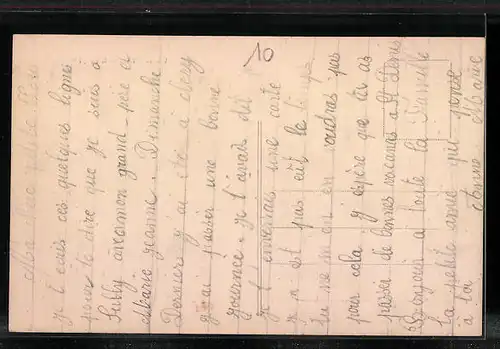 Ma bien petite
je t'ecris ces quelques lignes
pour te dire que je suis à
Sully avec mon grand-père et
Marie Jeanne. Dimanche
Dernier j'ai été à
j'ai passer une bonne
journee. je t'avais dit
je t'enverrais une carte
je n'ai pas eut le temps
tu ne m'en voudras pas
pour cela j'espère que tu as
passer de bonnes vacances a St Denis
Bonjour à toute la Famille
ta petite amie qui pense
à toi
Marie
10